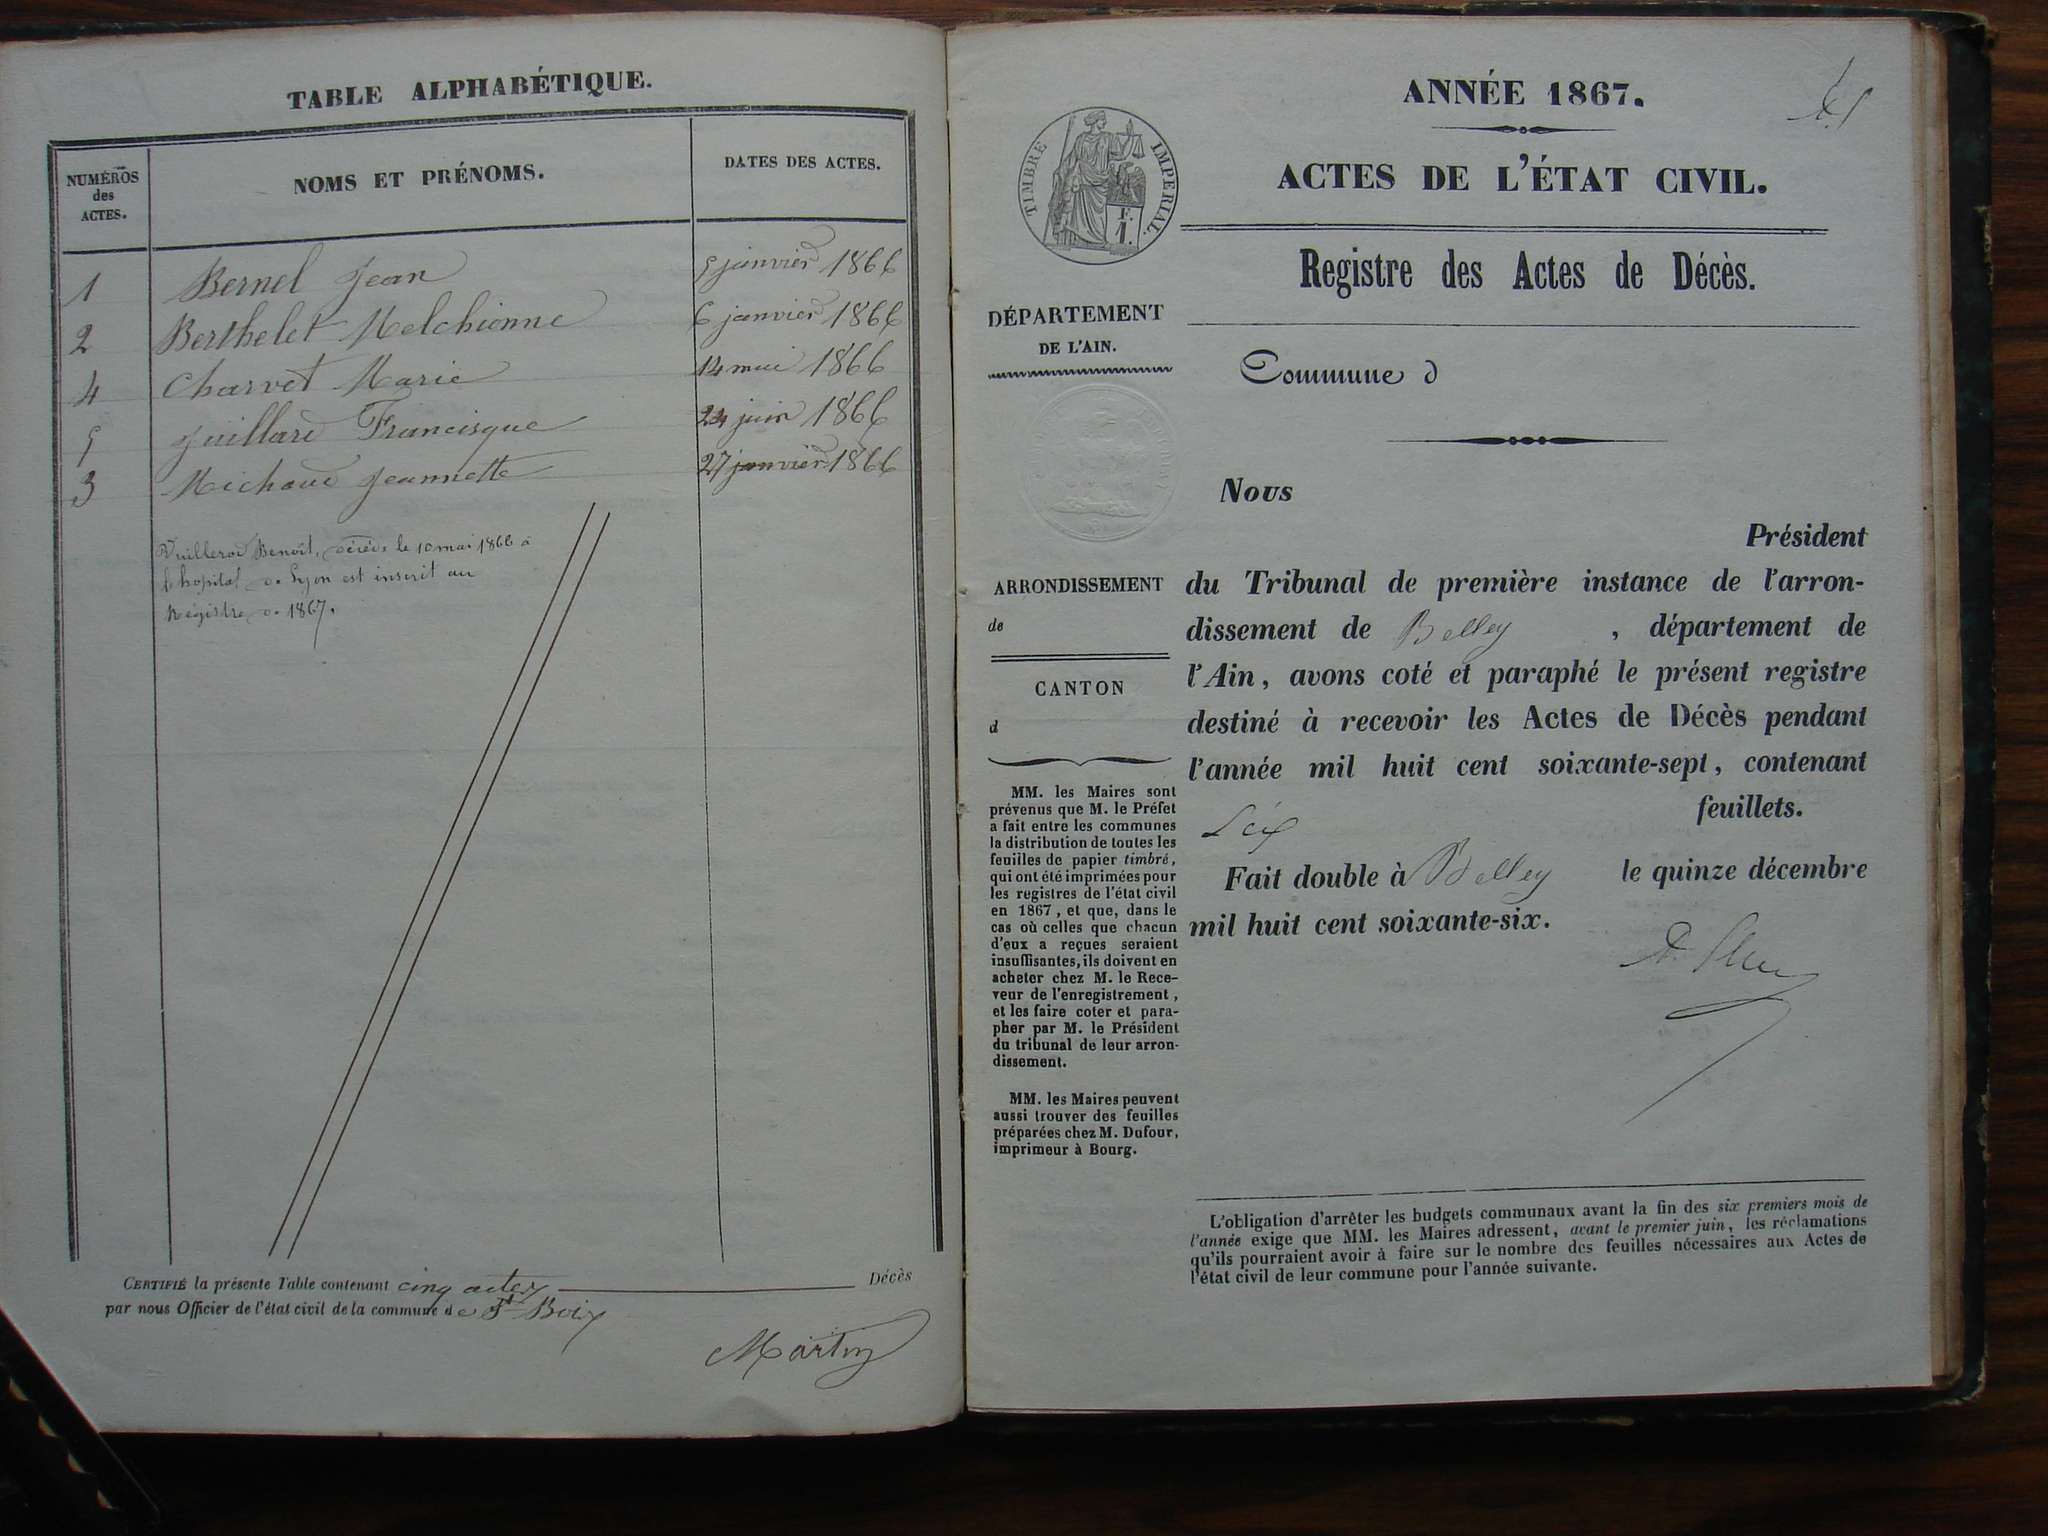 TABLE ALPHABÉTIQUE.
NUMÉROS
des
ACTES.
NOMS ET PRÉNOMS.
DATES DES ACTES.
1 Bernel Jean 5 janvier 1866
2 Berthelet Melchionne 6 janvier 1866
4 Charvet Marie 14 mai 1866
5 Juillard Francisque 24 juin 1866
3 Michaud Jeannette 27 janvier 1866
Vuillerod Benoît, décédé le 10 mai 1866 à
l'hopital de Lyon est inscrit au
Régistre de 1867.
CERTIFIÉ la présente Table contenant cinq actes Décès
par nous Officier de l'état civil de la commune de St Boix
Martin
ANNÉE 1867.
ACTES DE L'ÉTAT CIVIL.
TIMBRE IMPERIAL.
Registre des Actes de Décès.
DÉPARTEMENT
DE L'AIN.
Commune d
Nous
Président
ARRONDISSEMENT
de
CANTON
d
du Tribunal de première instance de l'arron-
dissement de Belley , département de
l'Ain, avons coté et paraphé le présent registre
destiné à recevoir les Actes de Décès pendant
l'année mil huit cent soixante-sept, contenant
Six feuillets.
Fait double à Belley le quinze décembre
mil huit cent soixante-six.
MM. les Maires sont
prévenus que M. le Préfet
a fait entre les communes
la distribution de toutes les
feuilles de papier timbré,
qui ont été imprimées pour
les registres de l'état civil
en 1867, et que, dans le
cas où celles que chacun
d'eux a reçues seraient
insuffisantes, ils doivent en
acheter chez M. le Rece-
veur de l'enregistrement,
et les faire coter et para-
pher par M. le Président
du tribunal de leur arron-
dissement.
MM. les Maires peuvent
aussi trouver des feuilles
préparées chez M. Dufour,
imprimeur à Bourg.
L'obligation d'arrêter les budgets communaux avant la fin des six premiers mois de
l'année exige que MM. les Maires adressent, avant le premier juin, les réclamations
qu'ils pourraient avoir à faire sur le nombre des feuilles nécessaires aux Actes de
l'état civil de leur commune pour l'année suivante.